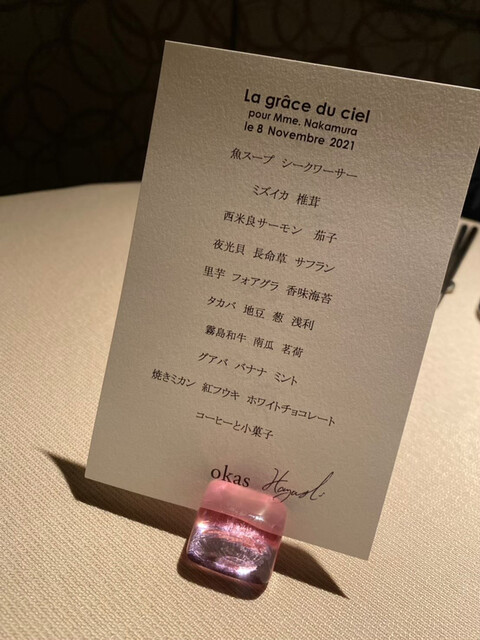 La grâce du ciel
pour Mme. Nakamura
le 8 Novembre 2021
魚スープ シークワーサー
ミズイカ 椎茸
西米良サーモン 茄子
夜光貝 長命草 サフラン
里芋 フォアグラ 香味海苔
タカバ 地豆 葱 浅利
霧島和牛 南瓜 茗荷
グアバ バナナ ミント
焼きミカン 紅フウキ ホワイトチョコレート
コーヒーと小菓子
okas Hayashi